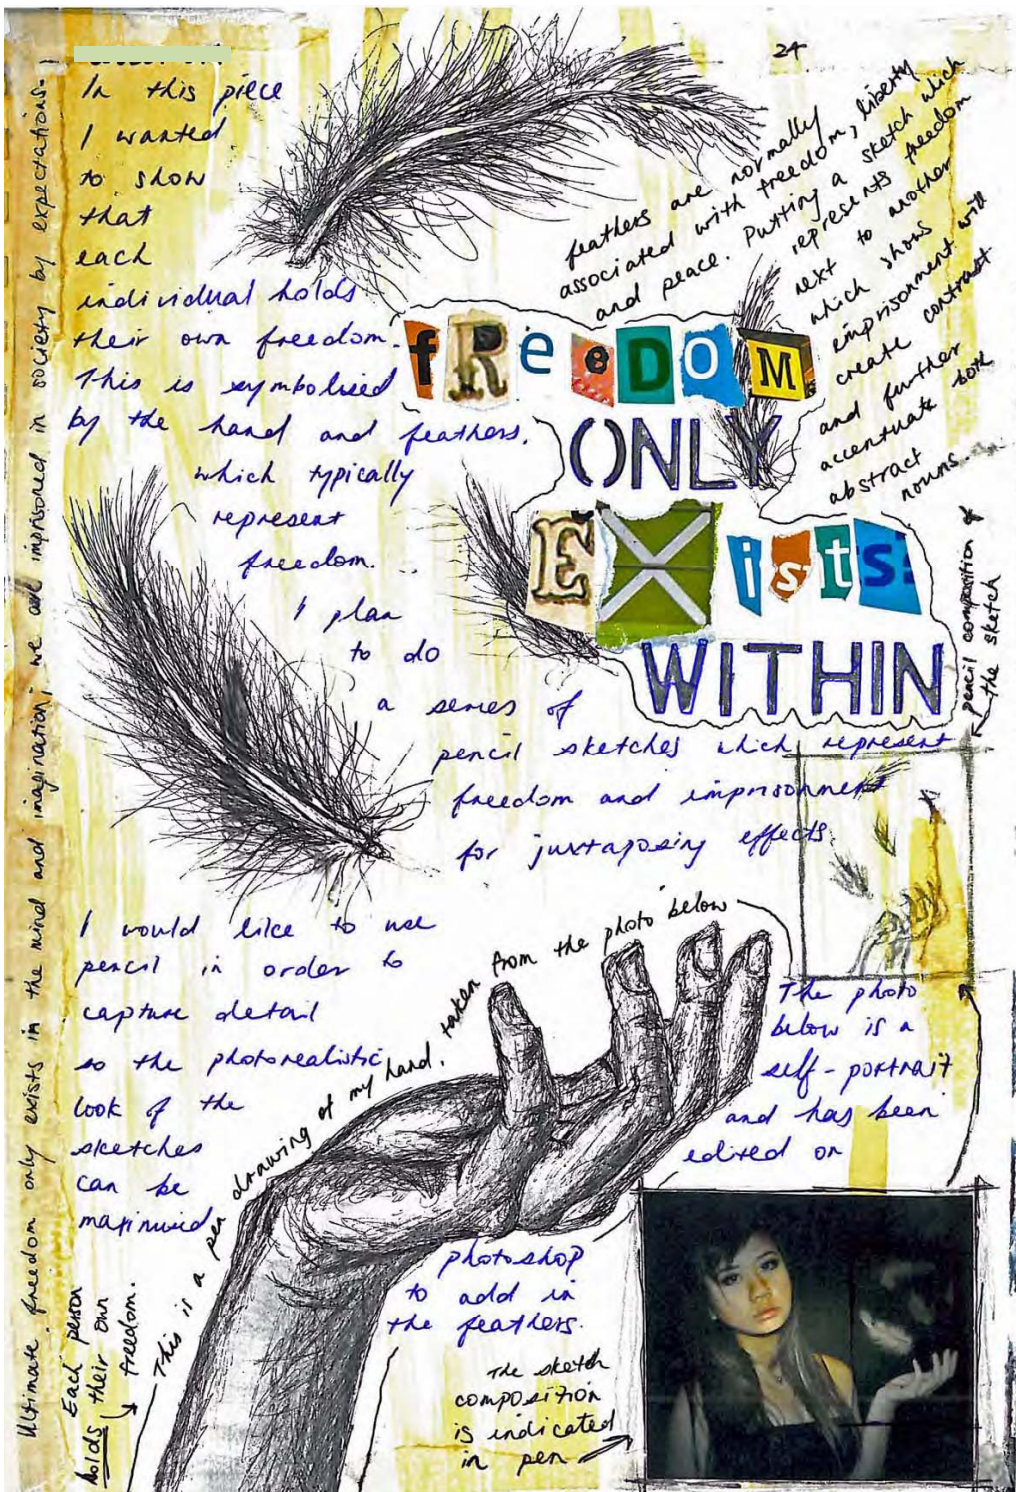 24
In this piece
I wanted
to show
that
each
individual holds
their own freedom.
This is symbolised
by the hand and feathers,
which typically
represent
freedom.
I plan
to do
a series of
pencil sketches which represent
freedom and imprisonment
for juxtaposing effects.
feathers are normally
associated with freedom, liberty
and peace. Putting a sketch which
represents freedom
next to another
which shows
imprisonment will
create contrast
and further
accentuate both
abstract
nouns.
fReeDOM
ONLY
EXists
WITHIN
pencil composition of
the sketch
I would like to use
pencil in order to
capture detail
so the photorealistic
look of the
sketches
can be
maximised
This is a pen drawing of my hand, taken from the photo below
The photo
below is a
self-portrait
and has been
edited on
photoshop
to add in
the feathers.
The sketch
composition
is indicated
in pen
Each person
holds their own
freedom.
Ultimate freedom only exists in the mind and imagination; we are imprisoned in society by expectations.